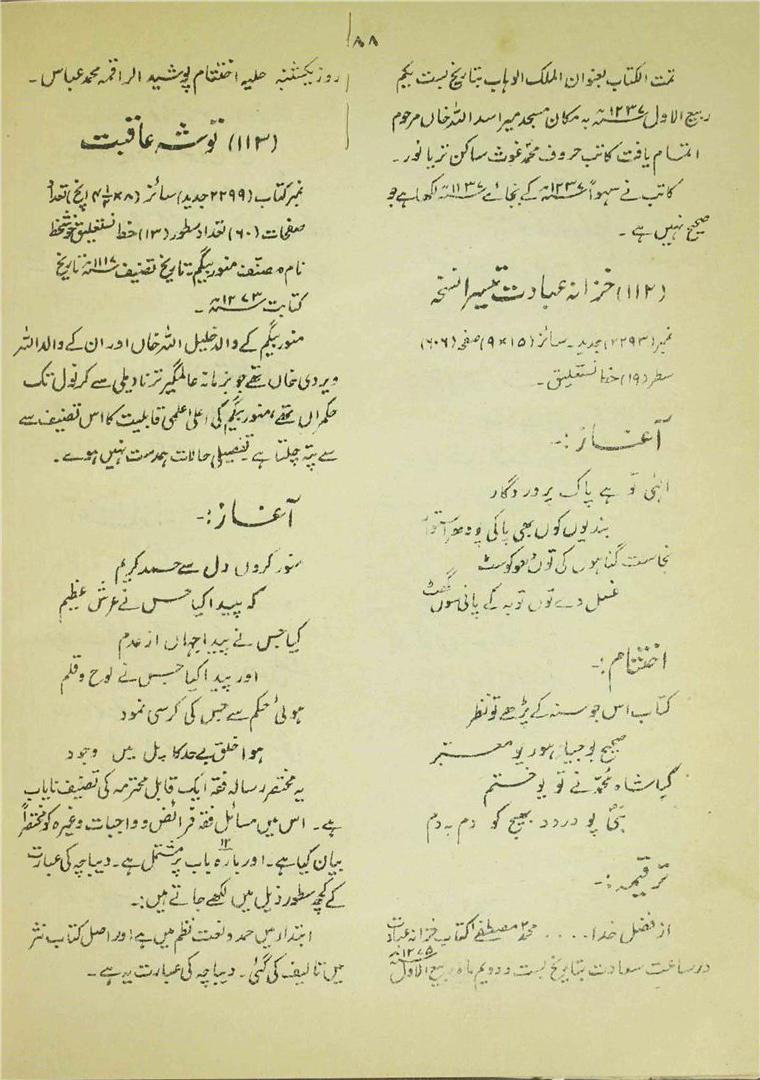 ۸۸
تمت الکتاب بعنوان الملک الوہاب بتاریخ بست یکم
ربیع الاول ۱۲۳۷ھ بہ مکان مسجد میر اسد اللہ خاں مرحوم
اتمام یافت کاتب حروف محمد غوث ساکن تریانور۔
کاتب نے سہواً ۱۲۳۷ھ کے بجائے ۱۱۳۷ھ لکھا ہے جو
صحیح نہیں ہے۔
(۱۱۲) خزانہ عبادت تیسرا نسخہ
نمبر (۲۲۹۳) جدید۔ سائز (۱۵×۹) صفحہ (۶۰۶)
سطر (۱۹) خط نستعلیق۔
آغاز:-
الٰہی تو ہے پاک پروردگار
بندیوں کوں بھی پاکی
نجاست گناہوں کی توں دھو کو سٹ
غسل دے توں توبہ کے پانی سوں گھٹ
اختتام:-
کتاب اس جو سنہ کے پڑھے تو نظر
صحیح بوجیا ہور یو معتبر
کیا شاہ محمدؐ نے تو یو ختم
نبیؐ پو درود بھیج کو دم بہ دم
ترقیمہ:-
از فضل خدا..... محمد مصطفےٰ کتاب خزانہ عبادت
در ساعت سعادت بتاریخ بست و دویم ماہ ربیع الاول ۱۲۷۵ھ
روز یکشنبہ حلیہ اختتام پوشید الراقمہ محمد عباس۔
(۱۱۳) توشہ عاقبت
نمبر کتاب (۲۲۹۹ جدید) سائز (۸×۴½ انچ) تعداد
صفحات (۶۰) تعداد سطور (۱۳) خط نستعلیق خوشخط
نام مصنف منور بیگم۔ تاریخ تصنیف ۱۱۱۷ھ تاریخ
کتابت ۱۲۷۳ھ۔
منور بیگم کے والد خلیل اللہ خاں اور ان کے والد اللہ
ویردی خاں تھے جو بزمانہ عالمگیر ترنادیلی سے کرنول تک
حکمراں تھے، منور بیگم کی اعلیٰ علمی قابلیت کا اس تصنیف سے
سے پتہ چلتا ہے۔ تفصیلی حالات ہمدست نہیں ہوے۔
آغاز:-
منور کروں دل سے حمد کریم
کہ پیدا کیا جس نے عرش عظیم
کیا جس نے پیدا جہاں از عدم
اور پیدا کیا جس نے لوح و قلم
ہوئی حکم سے جس کی کرسی نمود
ہوا خلق بے حد کا پل میں وجود
یہ مختصر رسالہ فقہ ایک قابل محترمہ کی تصنیف نایاب
ہے۔ اس میں مسائل فقہ فرائض و واجبات وغیرہ کو مختصراً
بیان کیا ہے۔ اور بارہ ۱۲ باب پر مشتمل ہے۔ دیباچہ کی عبارت
کے کچھ سطور ذیل میں لکھے جاتے ہیں:-
ابتدا میں حمد و نعت نظم میں ہے اور اصل کتاب نثر
میں تالیف کی گئی۔ دیباچہ کی عبارت یہ ہے۔